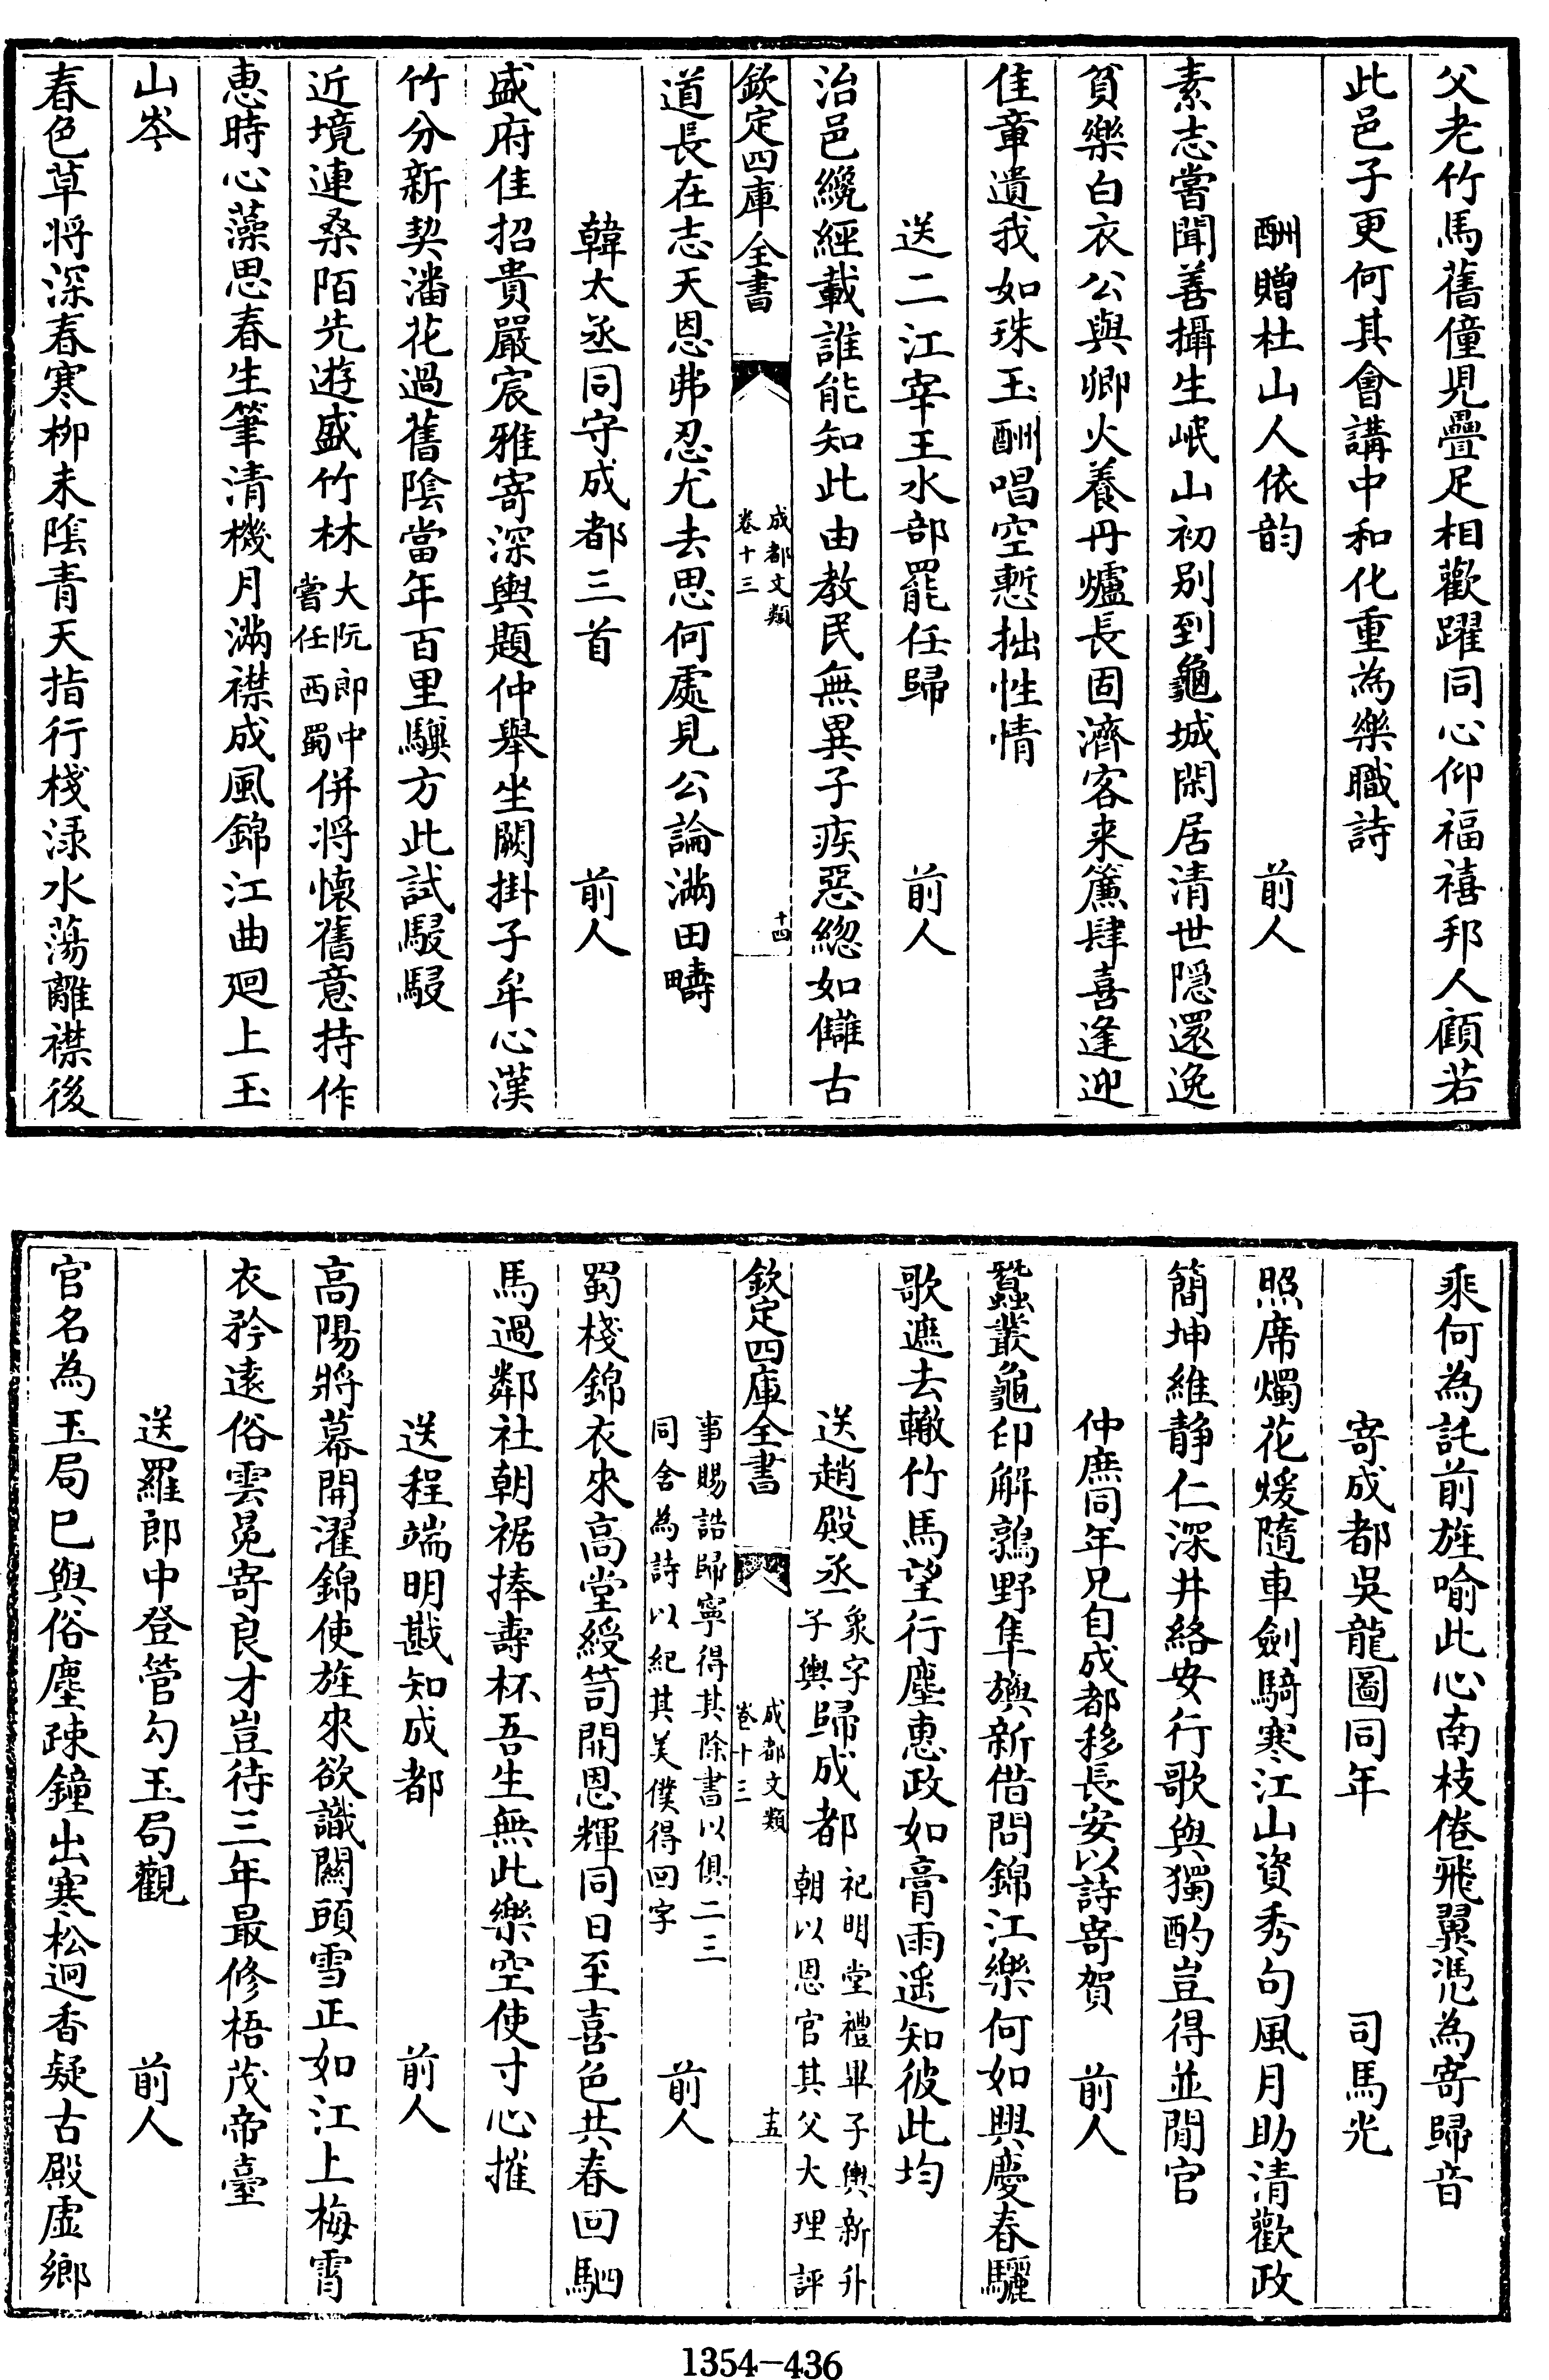 父老竹馬舊僮見疊足相歡躍同心仰福禧邦人顧若
此邑子更何其會講中和化重為樂職詩
酬贈杜山人依韵　前人
素志嘗聞善攝生岷山初别到龜城閑居清世隠還逸
貧樂白衣公與卿火養丹爐長固濟客来簾肆喜逢迎
佳章遺我如珠玉酬唱空慙拙性情
送二江宰王水部罷任歸　前人
治邑纔經載誰能知此由教民無異子疾惡緫如讎古
欽定四庫全書　成都文類卷十三　十四
道長在志天恩弗忍尤去思何處見公論滿田疇
韓太丞同守成都三首　前人
盛府佳招貴嚴宸雅寄深輿題仲舉坐闕掛子牟心漢
竹分新契潘花過舊隂當年百里驥方此試駸駸
近境連桑陌先遊盛竹林大阮郎中嘗任西蜀併將懷舊意持作
惠時心藻思春生筆清機月滿襟成風錦江曲廻上玉
山岑
春色草将深春寒栁未隂青天指行棧渌水蕩離襟後
乘何為託前旌喻此心南枝倦飛翼憑為寄歸音
寄成都吳龍圖同年　司馬光
照席燭花煖隨車劍騎寒江山資秀句風月助清歡政
簡坤維靜仁深井絡安行歌與獨酌豈得並閒官
仲庶同年兄自成都移長安以詩寄賀　前人
蠶叢龜印解鶉野隼旟新借問錦江樂何如興慶春驪
歌遮去轍竹馬望行塵惠政如膏雨遥知彼此均
送趙殿丞象字子輿歸成都祀明堂禮畢子輿新升朝以恩官其父大理評
欽定四庫全書　成都文類卷十三　十五
事賜誥歸寧得其除書以俱二三同舍為詩以紀其美僕得回字　前人
蜀棧錦衣來高堂綬笥開恩輝同日至喜色共春回駟
馬過鄰社朝裾捧壽杯吾生無此樂空使寸心摧
送程端明戡知成都　前人
高陽將幕開濯錦使旌來欲識關頭雪正如江上梅霄
衣矜遠俗雲冕寄良才豈待三年最修梧茂帝臺
送羅郎中登管勾玉局觀　前人
官名為玉局已與俗塵疎鐘出寒松迥香凝古殿虛鄉
1354—436